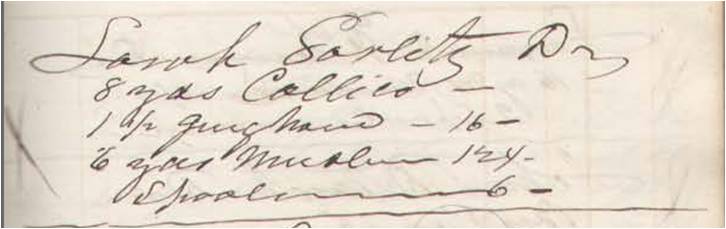 Sarah Garlitz Dr
8 yds Callico —
1 1/2 gingham — 16 —
6 yds Muslin 12 1/2 -
Spool 6 —